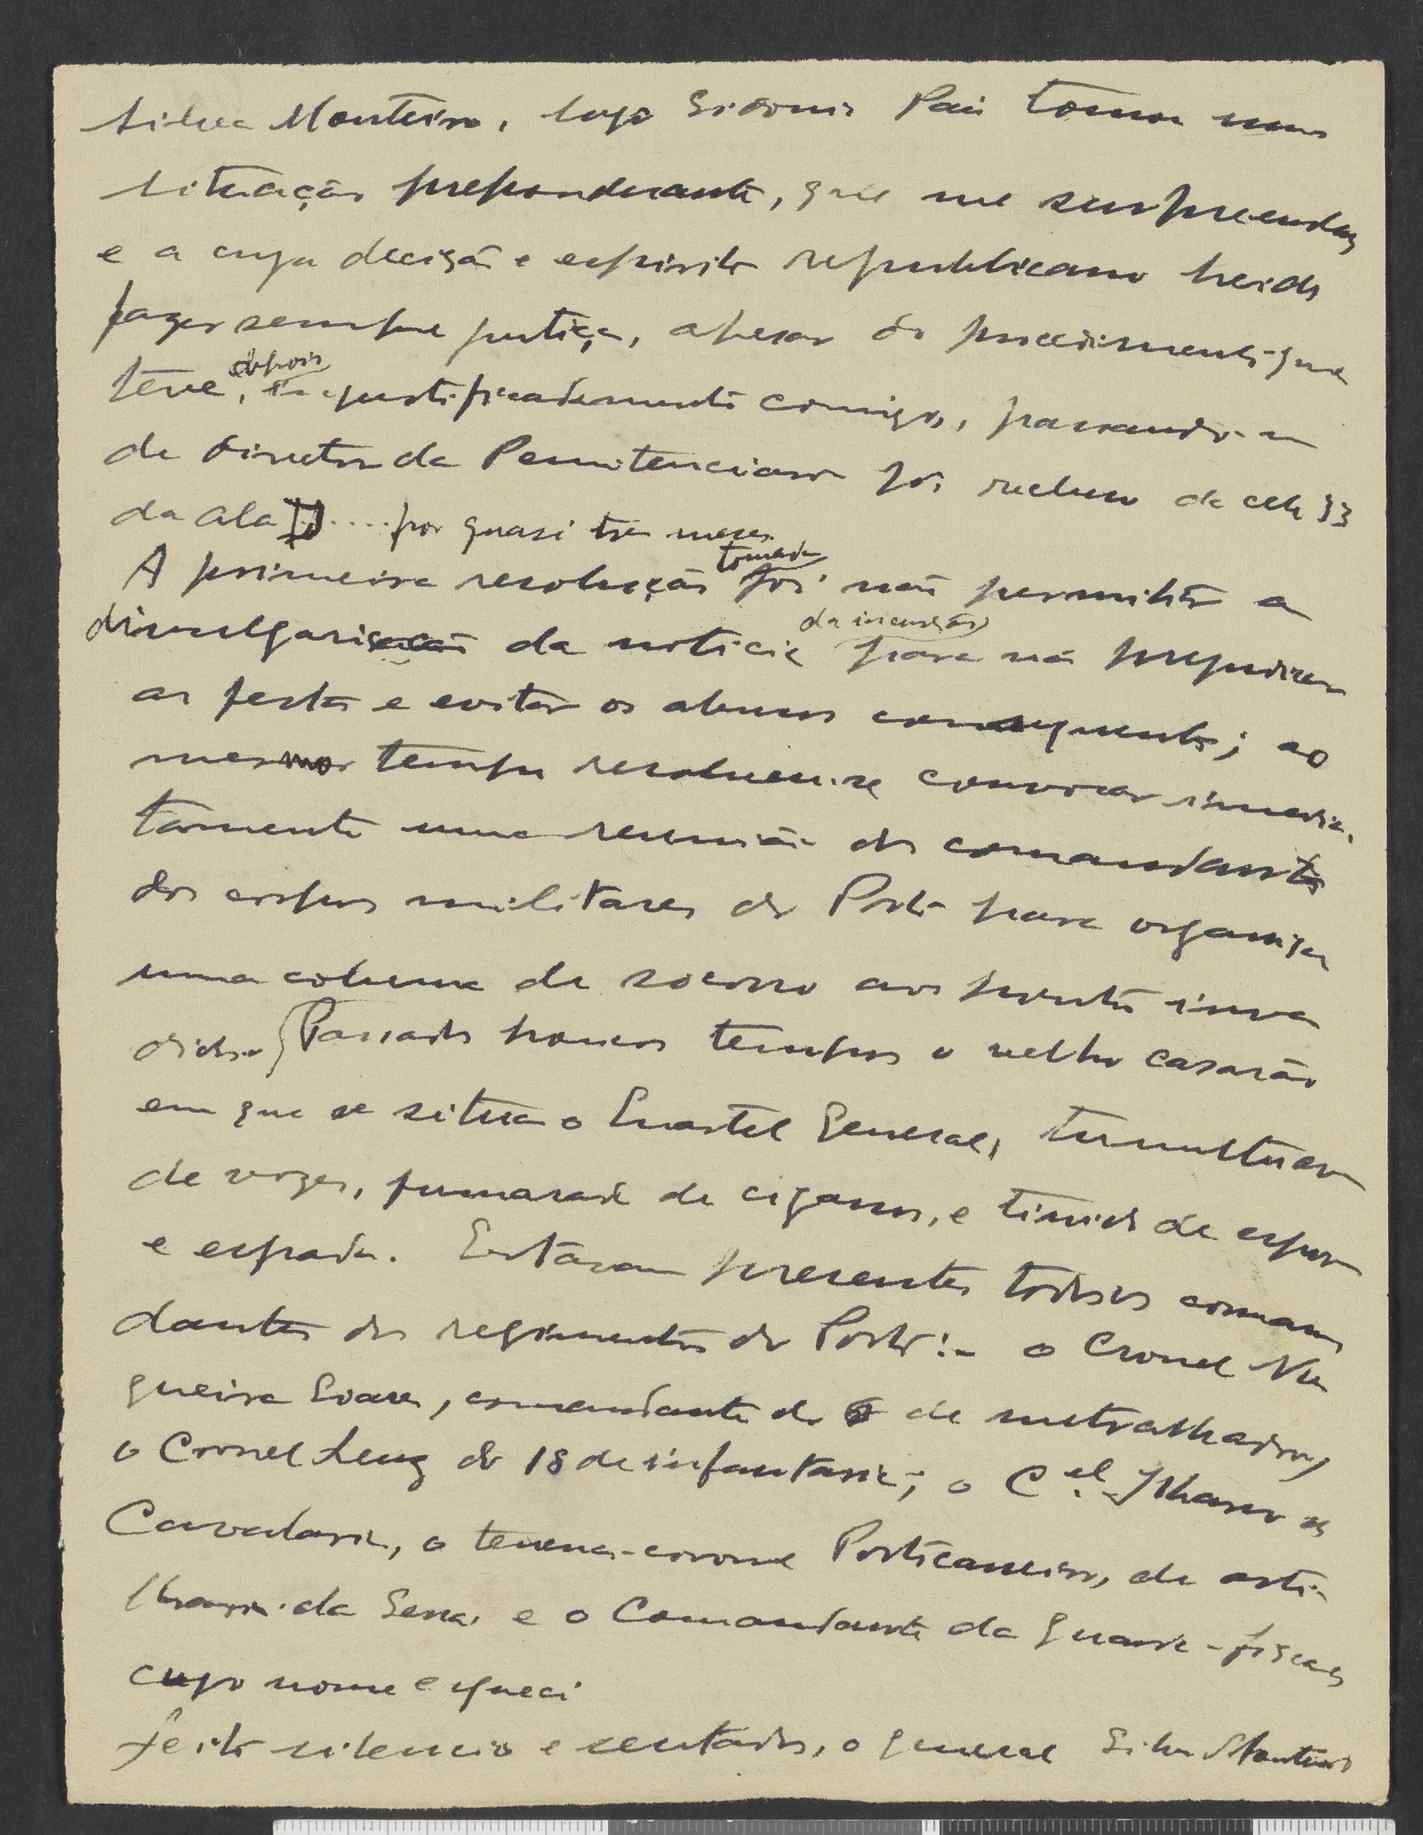 Silva Monteiro, logo Sidonio Pais tomou uma
situação preponderante, que me surpreendeu
e a cuja decisão e espirito republicano heide
fazer sempre justiça, apesar do procedimento que
teve, depois injustificadamente comigo, passando-me
de diretor da Penitenciaria foi recluso da cela 33
da ala D.... por quasi três meses.
A primeira resolução tomada foi não permitir a
divulgarisação da noticia da incursão para não prejudicar
as festas e evitar os abusos consequentes; ao
mesmo tempo resolveu-se convocar imedia-
tamente uma reunião dos comandantes
dos corpos militares do Porto para organisar
uma coluna de socorro aos pontos inva
didos. Passados poucos tempos o velho casarão
em que se situa o Quartel General, tumultuava
de vozes, fumarada de cigarros, e tinido de esporas
e espadas. Estavam presentes todos os coman
dantes dos regimentos do Porto:- o Cronel No
gueira Soares, comandante do 6 de metralhadoras,
o Cronel Leuz do 18 de infantaria; o C.el
Cavalaria, o tenente-coronel Porticarreiro, de arti-
lharia da Serra, e o Comandante da guarda-fiscal
cujo nome esqueci
Feito silencio e sentados, o general Silva Monteiro